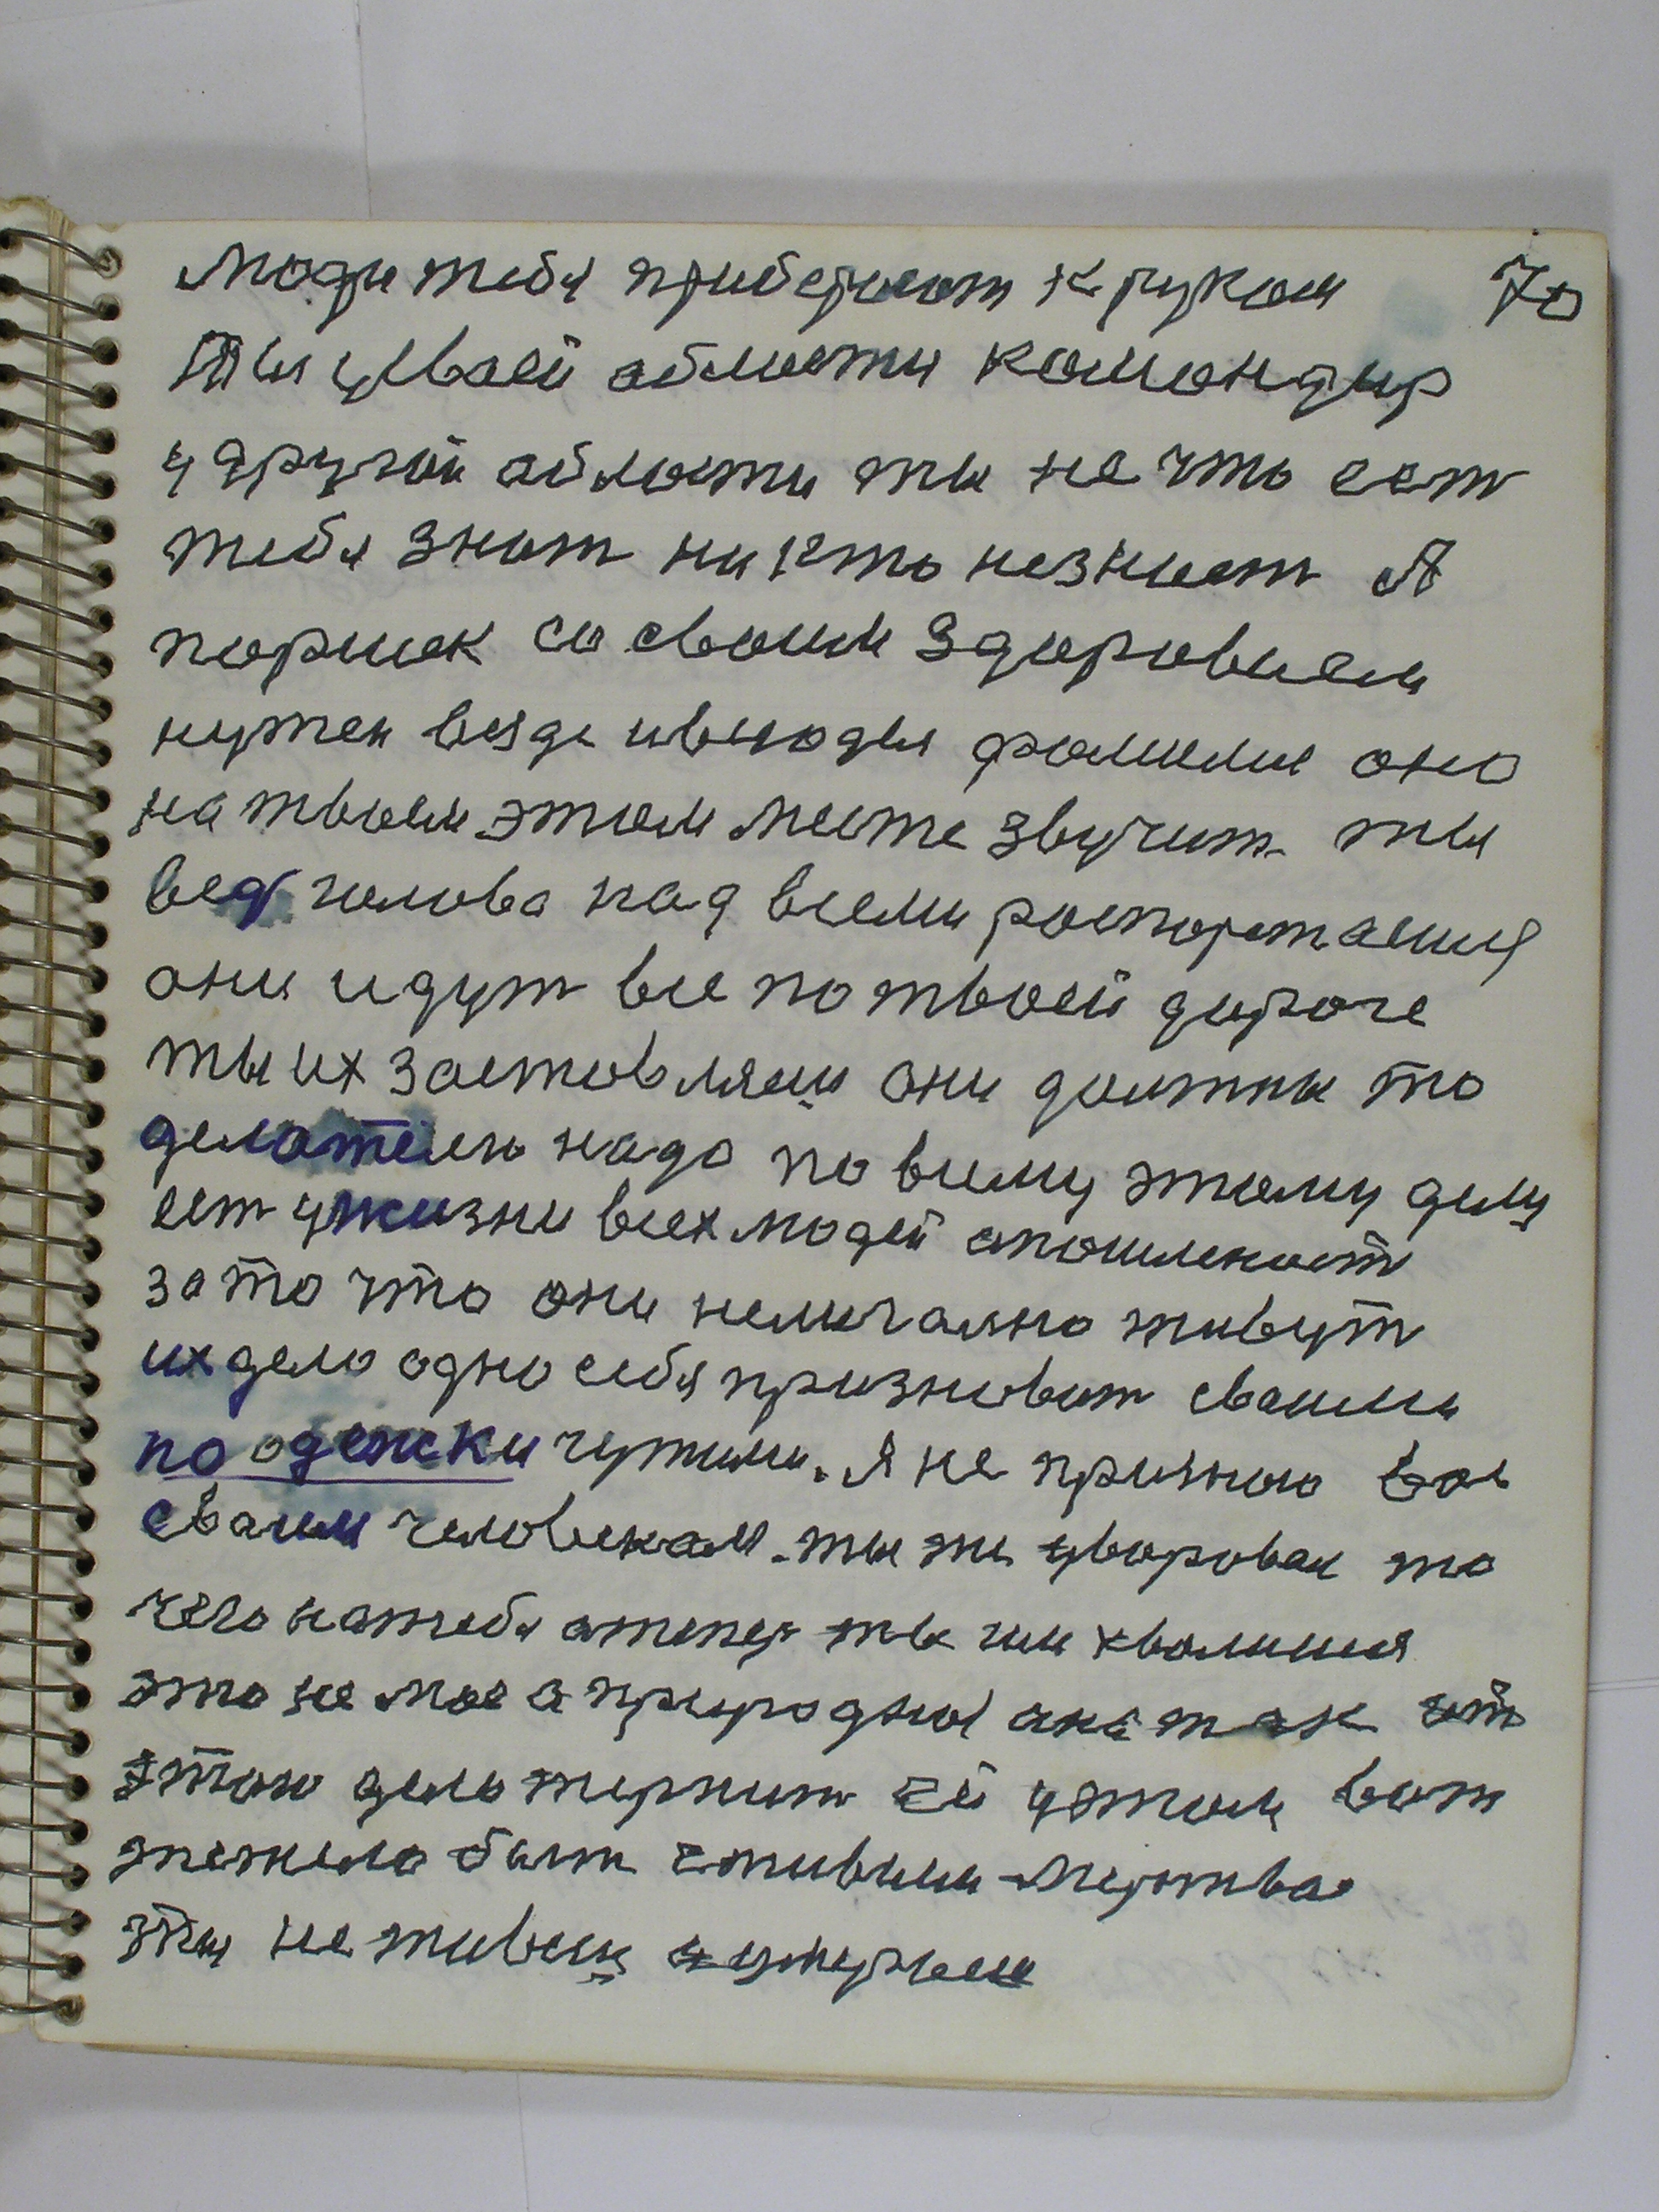 люди тебя приберают к рукам 70
Ты у своей области командир
у другой области ты не что ест
тебя знат ни кто незнает А
паршек со своим здоровием
нужен везде и всюды фамилие оно
на твоем этом месте звучит ты
вед голова над всеми
они идут все по твоей дороге
ты их заставляеш они должны то
делать надо по всему этому делу
ест у жизни всех людей
за то что они живут
их дело одно себя признават своими
по одежки чужими. Я не признаю вас
своим человекам. ты же уворовал то
чего на тебя а тепер ты им хвалишся
это не мое а природные
дело терпит ей у этом вот
тежело быт Мертвое
ты не живеш умираеш